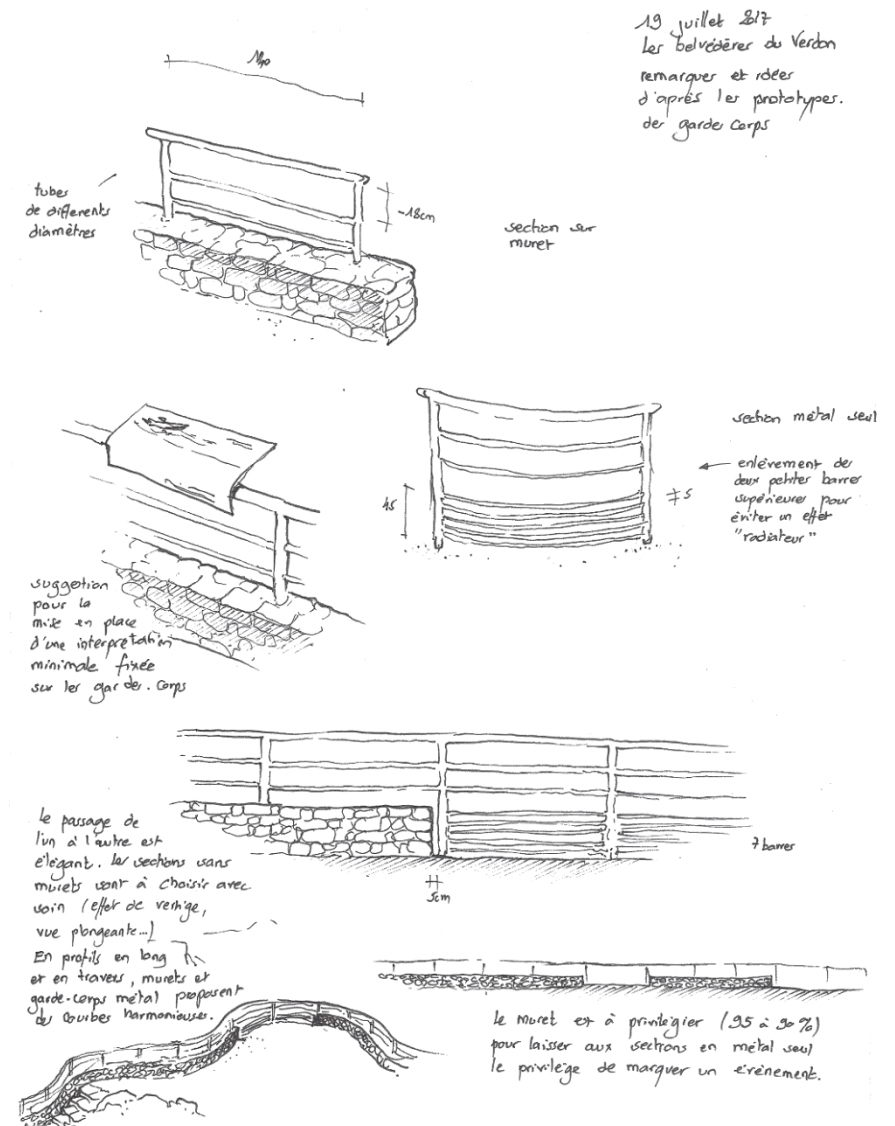 19 juillet 2017
Les belvédères du Verdon
remarques et idées
d'après les prototypes.
des gardes corps
tubes
de différents
diamètres
-18cm
section sur
muret
section métal seul
enlèvement des
deux petites barres
supérieures pour
éviter un effet
"radiateur"
45
5
suggestion
pour la
mise en place
d'une interprétation
minimale fixée
sur les gardes-corps
le passage de
l'un à l'autre est
élégant. les sections sans
murets sont à choisir avec
soin (effet de vertige,
vue plongeante...)
En profils en long
et en travers, murets et
garde-corps métal proposent
des courbes harmonieuses.
7 barres
5cm
le muret est à privilégier (95 à 90%)
pour laisser aux sections en métal seul
le privilège de marquer un évènement.